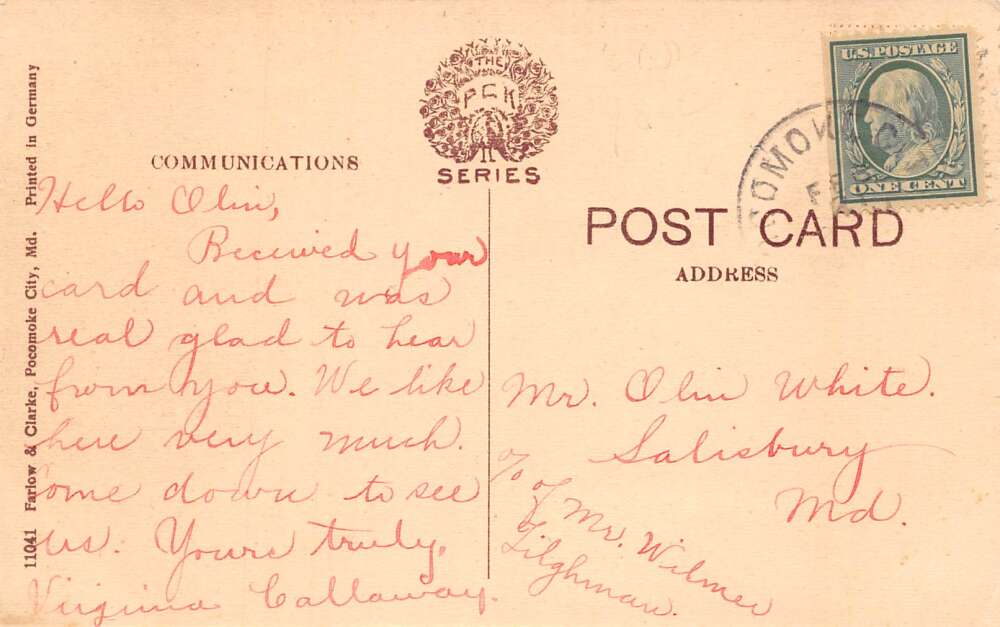 11041 Farlow & Clarke, Pocomoke City, Md. Printed in Germany
COMMUNICATIONS
THE
PCK
SERIES
U.S. POSTAGE
ONE CENT
POST CARD
ADDRESS
Hello Olin,
Received your
card and was
real glad to hear
from you. We like
here very much.
Come down to see
us. Yours truly,
Virginia Callaway.
Mr. Olin White.
Salisbury
Md.
c/o of Mr. Wilmer
Tilghman.